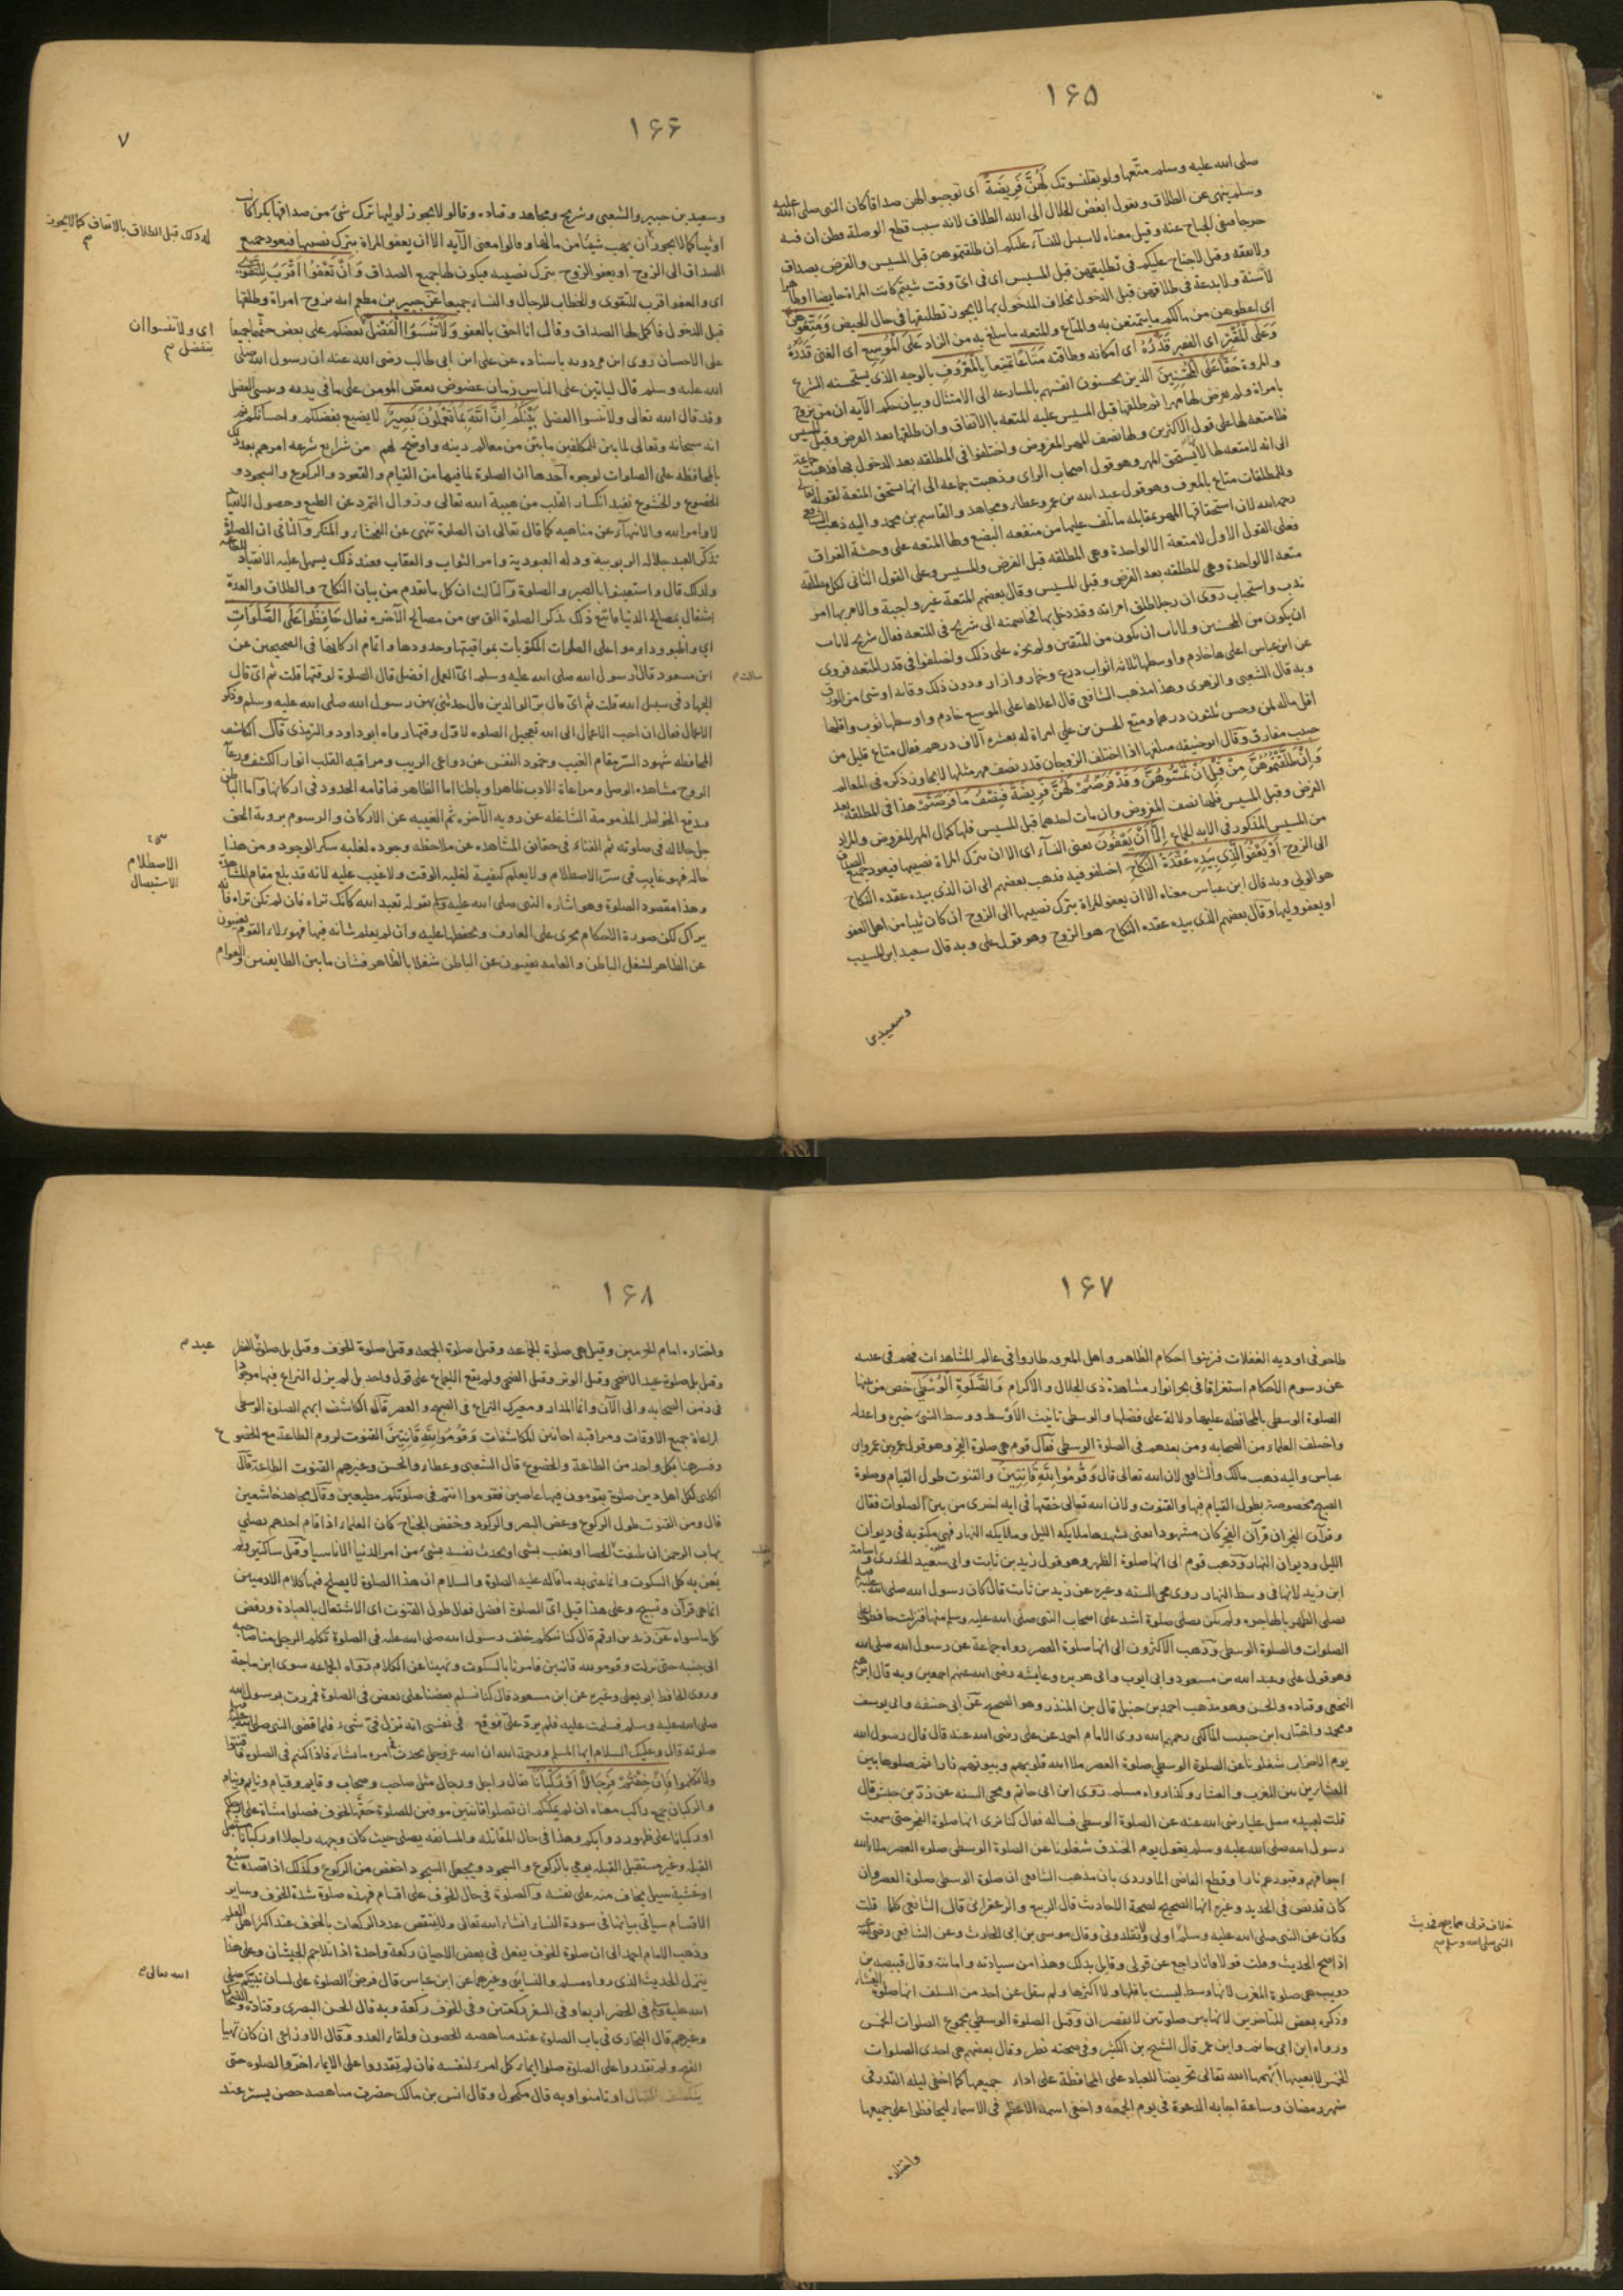 ١٦٥
صلى الله عليه وسلم متعها ولو بقلنسوتك لَهُنَّ فَرِيضَةً أي توجبوا لهن صداقا كان النبي صلى الله عليه
وسلم ينهى عن الطلاق ويقول ابغض الحلال الى الله الطلاق لانه سبب قطع الوصلة فظن ان فيه
حرجا فنفى الجناح عنه وقيل معناه لا سبيل للنساء عليكم ان طلقتموهن قبل المسيس والفرض بصداق
ولا نفقه وقيل لا جناح عليكم في تطليقهن قبل المسيس اى فى اىّ وقت شئتم كانت المراة حايضا او طاهرا
لا سنة ولا بدعة فى طلاقهن قبل الدخول بخلاف المدخول بها لا يجوز تطليقها فى حال الحيض وَمَتِّعُوهُنَّ
اى اعطوهن من مالكم ما يتمتعن به والمتاع والمتعه ما يبلغ به من الزاد عَلَى الْمُوسِعِ اى الغنى قَدَرُهُ
وَعَلَى الْمُقْتِرِ اى الفقير قَدَرُهُ اى امكانه وطاقته مَتَاعًا تمتيعا بِالْمَعْرُوفِ بالوجه الذى يستحسنه الشرع
والمروة حَقًّا عَلَى الْمُحْسِنِينَ الذين يحسنون انفسهم بالمسارعه الى الامتثال وبيان حكم الآيه ان من تزوج
بامراة ولم يفرض لها مهرا ثم طلقها قبل المسيس عليه المتعه بالاتفاق وان طلقها بعد الفرض وقبل المسيس
فلا متعه لها على قول الاكثرين ولها نصف المهر المفروض واختلفوا فى المطلقه بعد الدخول بها فذهبت جماعة
الى انه لا متعه لها لانها تستحق المهر وهو قول اصحاب الراى وذهبت جماعه الى انها تستحق المتعة لقوله تعالى
وللمطلقات متاع بالمعروف وهو قول عبد الله بن عمر وعطاء ومجاهد والقاسم بن محمد واليه ذهب الشافعى
رحمه الله لان استحقاقها المهر بمقابله ما اتلف عليها من منفعه البضع ولها المتعه على وحشة الفراق
فعلى القول الاول لا متعة الا لواحدة وهى المطلقه قبل الفرض والمسيس وعلى القول الثانى لكل مطلقة
متعه الا لواحدة وهى المطلقه بعد الفرض وقبل المسيس وقال بعضهم المتعة غير واجبة والامر بها امر
ندب واستحباب روى ان رجلا طلق امراته وقد دخل بها فخاصمته الى شريح فى المتعه فقال شريح لا تاب
ان يكون من المحسنين ولا تاب ان يكون من المتقين ولم يجبره على ذلك واختلفوا فى قدر المتعه فروى
عن ابن عباس اعلاها خادم واوسطها ثلاثه اثواب درع وخمار وازار ودون ذلك وقايه او شئ من الورق
وبه قال الشعبى والزهرى وهذا مذهب الشافعى قال اعلاها على الموسع خادم واوسطها ثوب واقلها
اقل ماله ثمن وحسن ثلثون درهما ومتع الحسن بن على امراة له بعشره آلاف درهم فقال متاع قليل من
حبيب مفارق وقال ابوحنيفه مبلغها اذا اختلف الزوجان قدر نصف مهر مثلها لا يجاوز ذكره فى المعالم
وَإِنْ طَلَّقْتُمُوهُنَّ مِنْ قَبْلِ أَنْ تَمَسُّوهُنَّ وَقَدْ فَرَضْتُمْ لَهُنَّ فَرِيضَةً فَنِصْفُ مَا فَرَضْتُمْ هذا فى المطلقه بعد
الفرض وقبل المسيس فلها نصف المفروض وان مات احدهما قبل المسيس فلها كمال المهر المفروض والمراد
من المسيس المذكور فى الايه الجماع إِلَّا أَنْ يَعْفُونَ يعنى النساء اى الا ان يترك المراة نصيبها فيعود جميع الصداق
الى الزوج أَوْ يَعْفُوَ الَّذِي بِيَدِهِ عُقْدَةُ النِّكَاحِ اختلفوا فيه فذهب بعضهم الى ان الذى بيده عقده النكاح
هو الولى وبه قال ابن عباس معناه الا ان يعفو المراة بترك نصيبها الى الزوج ان كان ثيبا من اهل العفو
او يعفو وليها وقال بعضهم الذى بيده عقده النكاح هو الزوج وهو قول على وبه قال سعيد ابن المسيب
وسعيد بن
١٦٦
٧
وسعيد بن جبير والشعبى وشريح ومجاهد وقتاده وقالوا لا يجوز لوليها ترك شئ من صداقها بكرا كانت
او ثيبا كما لا يجوز ان يهب شيئا من مالها وقالوا معنى الآيه الا ان يعفو المراة بترك نصيبها فيعود جميع
الصداق الى الزوج او يعفو الزوج بترك نصيبه فيكون لها جميع الصداق وَأَنْ تَعْفُوا أَقْرَبُ لِلتَّقْوَى
اى والعفو اقرب للتقوى والخطاب للرجال والنساء جميعا عن جبير بن مطعم انه تزوج امراة وطلقها
قبل الدخول فاكمل لها الصداق وقال انا احق بالعفو وَلَا تَنْسَوُا الْفَضْلَ بعضكم على بعض حثهما جميعا
على الاحسان روى ابن مردويه باسناده عن على ابن ابى طالب رضى الله عنه ان رسول الله صلى
الله عليه وسلم قال ليأتين على الناس زمان عضوض يعض المومن على ما فى يديه وينسى الفضل
وقد قال الله تعالى ولا تنسوا الفضل بَيْنَكُمْ إِنَّ اللَّهَ بِمَا تَعْمَلُونَ بَصِيرٌ لا يضيع بفضلكم واحسانكم ثم
انه سبحانه وتعالى لما بين للمكلفين ما بين من معالم دينه واوضح لهم من شرايع شرعه امرهم بعد ذلك
بالمحافظه على الصلوات لوجوه احدها ان الصلوة لما فيها من القيام والقعود والركوع والسجود و
الخضوع والخشوع تفيد انكسار القلب من هيبة الله تعالى وزوال التمرد عن الطبع وحصول الانقياد
لاوامر الله والانتهاء عن مناهيه كما قال تعالى ان الصلوة تنهى عن الفحشاء والمنكر والثانى ان الصلوة
تذكر العبد جلاله الربوبية وذله العبودية وامر الثواب والعقاب وعند ذلك يسهل عليه الانقياد للطاعه
ولذلك قال واستعينوا بالصبر والصلوة والثالث ان كل ما تقدم من بيان النكاح والطلاق والعدة
اشتغال بمصالح الدنيا فاتبع ذلك بذكر الصلوة التى هى من مصالح الآخره فقال حَافِظُوا عَلَى الصَّلَوَاتِ
اى واظبوا وداوموا على الصلوات المكتوبات بمواقيتها وحدودها واتمام اركانها فى الصحيحين عن
ابن مسعود قال رسول الله صلى الله عليه وسلم اىّ العمل افضل قال الصلوة لوقتها قلت ثم اىّ قال
الجهاد فى سبيل الله قلت ثم اىّ قال بر الوالدين قال حدثنى بهن رسول الله صلى الله عليه وسلم وذكر
الاعمال فقال ان احب الاعمال الى الله تعجيل الصلوه لاول وقتها رواه ابو داود والترمذى قال الكاشف
المحافظه شهود السر مقام الغيب وخمود النفس عن دواعى الريب ومراقبه القلب انوار الكشف ورعاية
الروح مشاهده الوصل ومراعاة الادب ظاهرا وباطنا اما الظاهر فاقامه الحدود فى اركانها واما الباطن
فدفع الخواطر المذمومة الشاغله عن رويه الآخره ثم الغيبه عن الاركان والرسوم بروية الحق
جل جلاله فى صلوته ثم الفناء فى حقايق المشاهده عن ملاحظه وجوده لغلبه سكر الوجود ومن هذا
حاله فهو غايب فى سرّ الاصطلام ولا يعلم كيفية لغلبه الوقت ولا عيب عليه لانه قد بلغ مقام المشاهدة
وهذا مقصود الصلوة وهو اشاره النبى صلى الله عليه وسلم بقوله تعبد الله كانك تراه فان لم تكن تراه فانه
يراك لكن صورة الاحكام يجرى على العارف ويحفظها عليه وان لم يعلم شانه فيها فهولاء القوم يغيبون
عن الظاهر لشغل الباطن والعامه يغيبون عن الباطن شغلا بالظاهر فشان ما بين الطايفتين والعوام
له ذلك قبل الطلاق بالاتفاق كما لا يجوز م
اى ولا تنسوا ان
يتفضل م
سالت م
الاصطلام
الاستيصال
١٦٧
طاحوا فى اوديه الغفلات فزينوا احكام الظاهر واهل المعرفه طاروا فى عالم المشاهدات فهم فى غيبه
عن رسوم الاحكام استغراقا فى بحر انوار مشاهدة ذى الجلال والاكرام وَالصَّلَوةِ الْوُسْطَى خص من بينها
الصلوة الوسطى بالمحافظه عليها دلالة على فضلها والوسطى تانيث الاوسط ووسط الشئ خيره واعدله
واختلف العلماء من الصحابه ومن بعدهم فى الصلوة الوسطى فقال قوم هى صلوة الفجر وهو قول عمر وابن عمر وابن
عباس واليه ذهب مالك والشافعى لان الله تعالى قال وَقُومُوا لِلَّهِ قَانِتِينَ والقنوت طول القيام وصلوة
الصبح مخصوصة بطول القيام فيها والقنوت ولان الله تعالى خصها فى ايه اخرى من بين الصلوات فقال
وقرآن الفجر ان قرآن الفجر كان مشهودا يعنى يشهدها ملايكه الليل وملايكه النهار فهى مكتوبه فى ديوان
الليل وديوان النهار وذهب قوم الى انها صلوة الظهر وهو قول زيد بن ثابت وابى سعيد الخدرى واسامة
ابن زيد لانها فى وسط النهار روى محى السنه وغيره عن زيد بن ثابت قال كان رسول الله صلى الله عليه وسلم
يصلى الظهر بالهاجره ولم يكن يصلى صلوة اشد على اصحاب النبى صلى الله عليه وسلم منها فنزلت حافظوا على
الصلوات والصلوة الوسطى وذهب الاكثرون الى انها صلوة العصر رواه جماعة عن رسول الله صلى الله
وهو قول على وعبد الله بن مسعود وابى ايوب وابى هريره وعايشه رضى الله عنهم اجمعين وبه قال ابرهيم
النخعى وقتاده والحسن وهو مذهب احمد بن حنبل قال بن المنذر وهو الصحيح عن ابى حنيفه وابى يوسف
ومحمد واختاره ابن حبيب المالكى رحمهم الله روى الامام احمد عن على رضى الله عنه قال قال رسول الله
يوم الاحزاب شغلونا عن الصلوة الوسطى صلوة العصر ملا الله قلوبهم وبيوتهم نارا ثم صلوها بين
العشاءين بين المغرب والعشاء وكذا رواه مسلم وروى ابن ابى حاتم ومحى السنه عن زر بن حبيش قال
قلت لعبيده سل عليا رضى الله عنه عن الصلوة الوسطى فساله فقال كنا نرى انها صلوة الفجر حتى سمعت
رسول الله صلى الله عليه وسلم يقول يوم الخندق شغلونا عن الصلوة الوسطى صلوه العصر ملا الله
اجوافهم وقبورهم نارا وقطع القاضى الماوردى بان مذهب الشافعى ان صلوة الوسطى صلوة العصر وان
كان قد نص فى الجديد وغيره انها الصبح لصحة الاحاديث قال الربيع والزعفرانى قال الشافعى كلما قلت
وكان عن النبى صلى الله عليه وسلم اولى ولا تقلدونى وقال موسى بن ابى الجارود وعن الشافعى رضى الله عنه
اذا صح الحديث وقلت قولا فانا راجع عن قولى وقايل بذلك وهذا من سيادته وامانته وقال قبيصه بن
ذويب هى صلوة المغرب لانها وسط ليست باقلها ولا اكثرها ولم ينقل عن احد من السلف انها صلوة العشاء
وذكره بعض المتاخرين لانها بين صلوتين لا تقصران وقيل الصلوة الوسطى مجموع الصلوات الخمس
ورواه ابن ابى حاتم وابن عمر قال الشيخ بن الكثير وفى صحته نظر وقال بعضهم هى احدى الصلوات
الخمس لا بعينها ابهمها الله تعالى تحريضا للعباد على المحافظة على اداء جميعها كما اخفى ليله القدر فى
شهر رمضان وساعة اجابه الدعوة فى يوم الجمعه واخفى اسمه الاعظم فى الاسماء ليحافظوا على جميعها
واختاره
خلاف قولى مما يصح بحديث
النبى صلى الله وسلم م
١٦٨
واختاره امام الحرمين وقيل هى صلوة الجماعه وقيل صلوة الجمعه وقيل صلوة الخوف وقيل بل صلوة الفطر
وقيل بل صلوة عيد الاضحى وقيل الوتر وقيل الضحى ولم يقع الاجماع على قول واحد بل لم يزل النزاع فيها موجودا
فى زمن الصحابه والى الآن وانما المدار ومعترك النزاع فى الصبح والعصر قال الكاشف ابهم الصلوة الوسطى
لمراعاة جميع الاوقات ومراقبه احايين المكاشفات وَقُومُوا لِلَّهِ قَانِتِينَ القنوت لزوم الطاعة مع الخضوع
وفسر هنا بكل واحد من الطاعة والخضوع قال الشعبى وعطاء والحسن وغيرهم القنوت الطاعة قال
الكلبى لكل اهل دين صلوة يقومون فيها عاصين فقوموا انتم فى صلوتكم مطيعين وقال مجاهد خاشعين
قال ومن القنوت طول الركوع وغض البصر والركود وخفض الجناح كان العلماء اذا قام احدهم يصلى
يهاب الرحمن ان يلتفت او يقلب الحصا او يعبث بشئ او يحدث نفسه بشئ من امر الدنيا الا ناسيا وقيل ساكتين ولم
يعن به كل السكوت وانما عنى به ما قاله عليه الصلوة والسلام ان هذا الصلوة لا يصلح فيها كلام الادميين
انما هى قرآن وتسبيح وعلى هذا قيل اىّ الصلوة افضل فقال طول القنوت اى الاشتغال بالعبادة ورفض
كل ما سواه عن زيد بن ارقم قال كنا نتكلم خلف رسول الله صلى الله عليه فى الصلوة تكلم الرجل منا صاحبه
الى جنبه حتى نزلت وقوموا لله قانتين فامرنا بالسكوت ونهينا عن الكلام رواه الجماعه سوى ابن ماجة
وروى الحافظ ابو يعلى وغيره عن ابن مسعود قال كنا نسلم بعضنا على بعض فى الصلوة فمررت برسول الله
صلى الله عليه وسلم فسلمت عليه فلم يرد علىّ فوقع فى نفسى انه نزل فىّ شىء فلما قضى النبى صلى الله عليه
صلوته قال وعليك السلام ايها المسلم ورحمة الله ان الله عز وجل يحدث فى امره ما يشاء فاذا كنتم فى الصلوه فاقنتوا
ولا تكلموا فَإِنْ خِفْتُمْ فَرِجَالًا أَوْ رُكْبَانًا يقال راجل ورجال مثل صاحب وصحاب وقايم وقيام ونايم ونيام
والركبان جمع راكب معناه ان لم يمكنكم ان تصلوا قانتين موفين للصلوة حقها لخوف فصلوا مشاة على ارجلكم
او ركبانا على ظهور دوابكم وهذا فى حال المقاتله والمسايفه يصلى حيث كان وجهه راجلا او راكبا مستقبل
القبله وغير مستقبل القبله يومى بالركوع والسجود ويجعل السجود اخفض من الركوع وكذلك اذا قصده سبع
او غشيه سيل يخاف منه على نفسه والصلوة فى حال الخوف على اقسام فهذه صلوة شدة الخوف وساير
الاقسام سياتى بيانها فى سورة النساء ان شاء الله تعالى ولا ينتقص عدد الركعات بالخوف عند اكثر اهل العلم
وذهب الامام احمد الى ان صلوة الخوف يفعل فى بعض الاحيان ركعة واحدة اذا تلاحم الجيشان وعلى هذا
يتنزل الحديث الذى رواه مسلم والنسايى وغيرهما عن ابن عباس قال فرض الصلوة على لسان نبيكم صلى
الله عليه وسلم فى الحضر اربعا وفى السفر ركعتين وفى الخوف ركعة وبه قال الحسن البصرى وقتادة والضحاك
وغيرهم قال البخارى فى باب الصلوة عند مناهضه الحصون ولقاء العدو وقال الاوزاعى ان كان تهيا
الفتح ولم تقدروا على الصلوة صلوا ايماء كل امرء لنفسه فان لم تقدروا على الايماء اخروا الصلوه حتى
ينكشف القتال او تامنوا وبه قال مكحول وقال انس بن مالك حضرت مناهضه حصن تستر عند
عيد م
الله تعالى